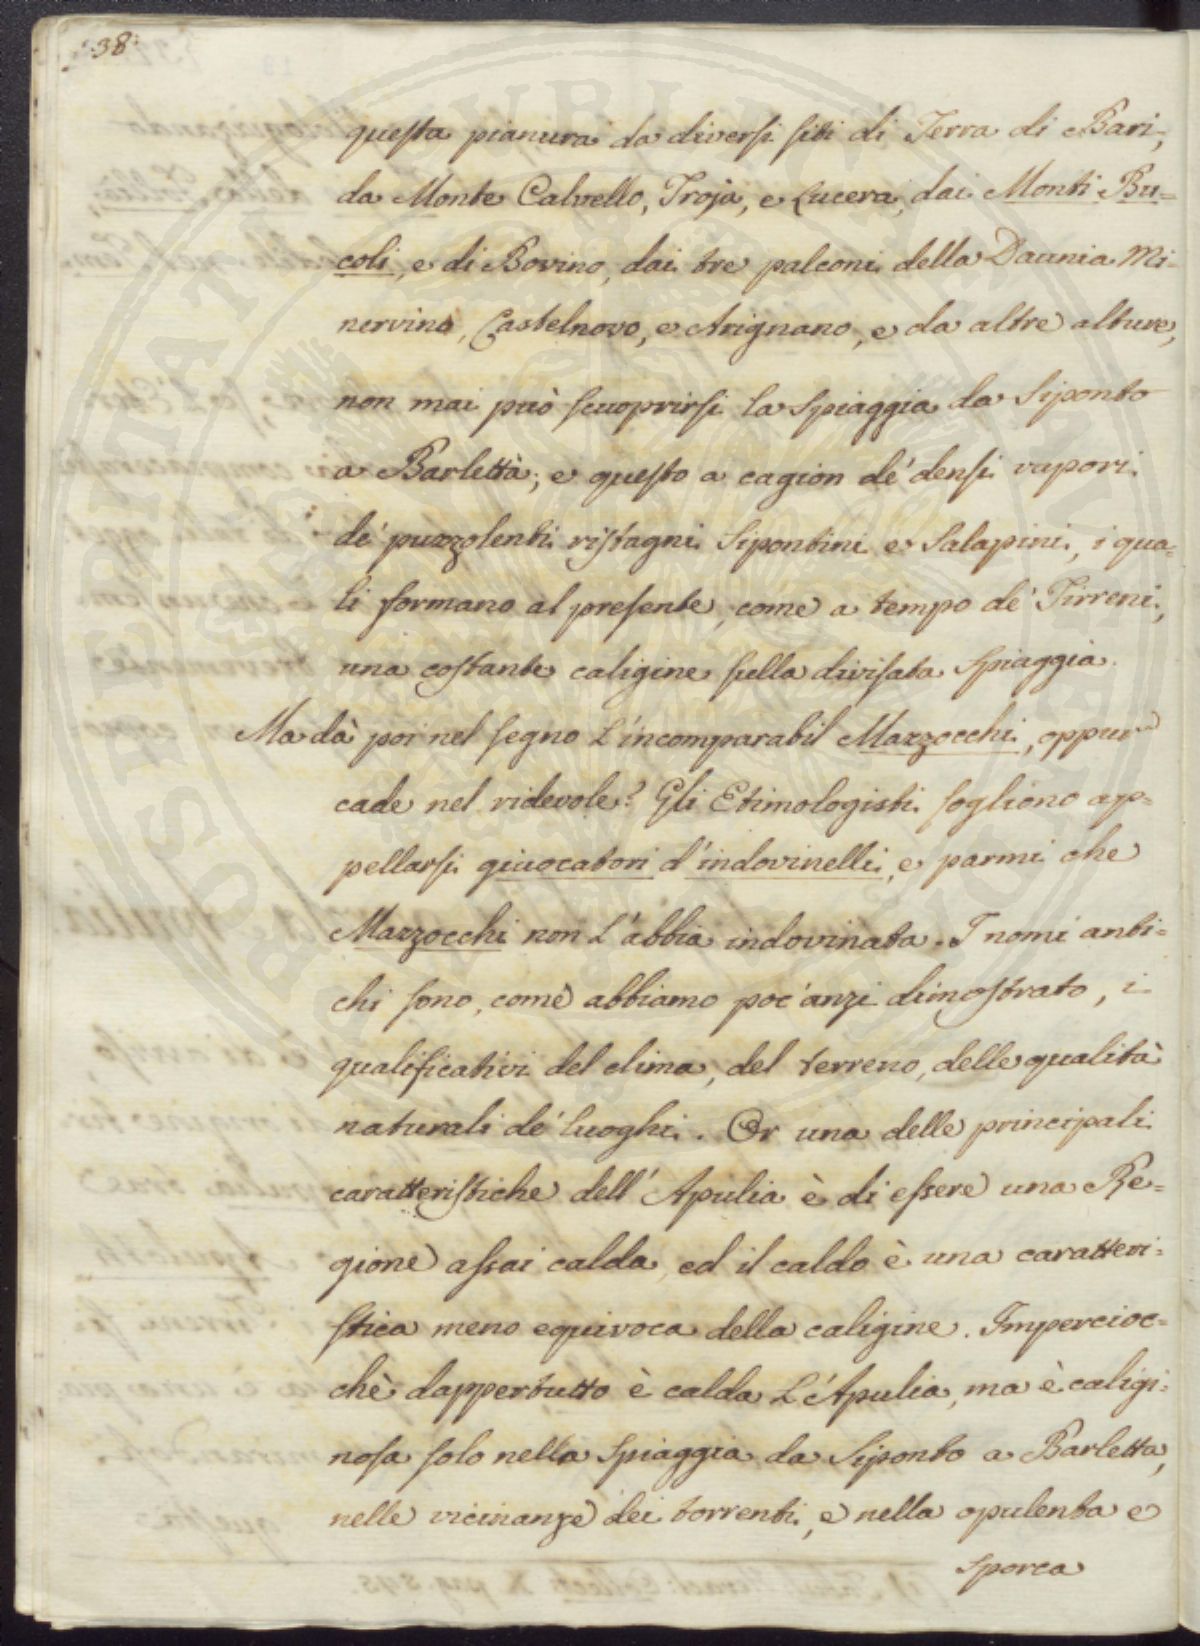 :38:
questa pianura da diversi siti di Terra di Bari,
da Monte Calvello, Troja, e Lucera, dai Monti Bu=
coli, e di Bovino, dai tre palconi della Daunia Mi=
nervino, Castelnovo, e Arignano, e da altre alture,
non mai può scuoprirsi la spiaggia da Siponto
a Barlettà; e questo a cagion de' densi vapori
de' puzzolenti ristagni Sipontini e Salapini, i qua=
li formano al presente, come a tempo de' Tirreni,
una costante caligine sulla divisata spiaggia.
Ma dà poi nel segno l'incomparabil Mazzocchi, oppur
cade nel ridevole? Gli Etimologisti sogliono ap=
pellarsi giuocatori d'indovinelli, e parmi che
Mazzocchi non l'abbia indovinata. I nomi anti=
chi sono, come abbiamo poc'anzi dimostrato, i
qualificativi del clima, del terreno, delle qualità
naturali de' luoghi. Or una delle principali
caratteristiche dell'Apulia è di essere una Re=
gione assai calda, ed il caldo è una caratteri=
stica meno equivoca della caligine. Impercioc=
chè dappertutto è calda l'Apulia, ma è caligi=
nosa solo nella spiaggia da Siponto a Barletta,
nelle vicinanze dei torrenti, e nella opulenta e
sporca
SOSPERITAT PUBLICAE AUGENDAE